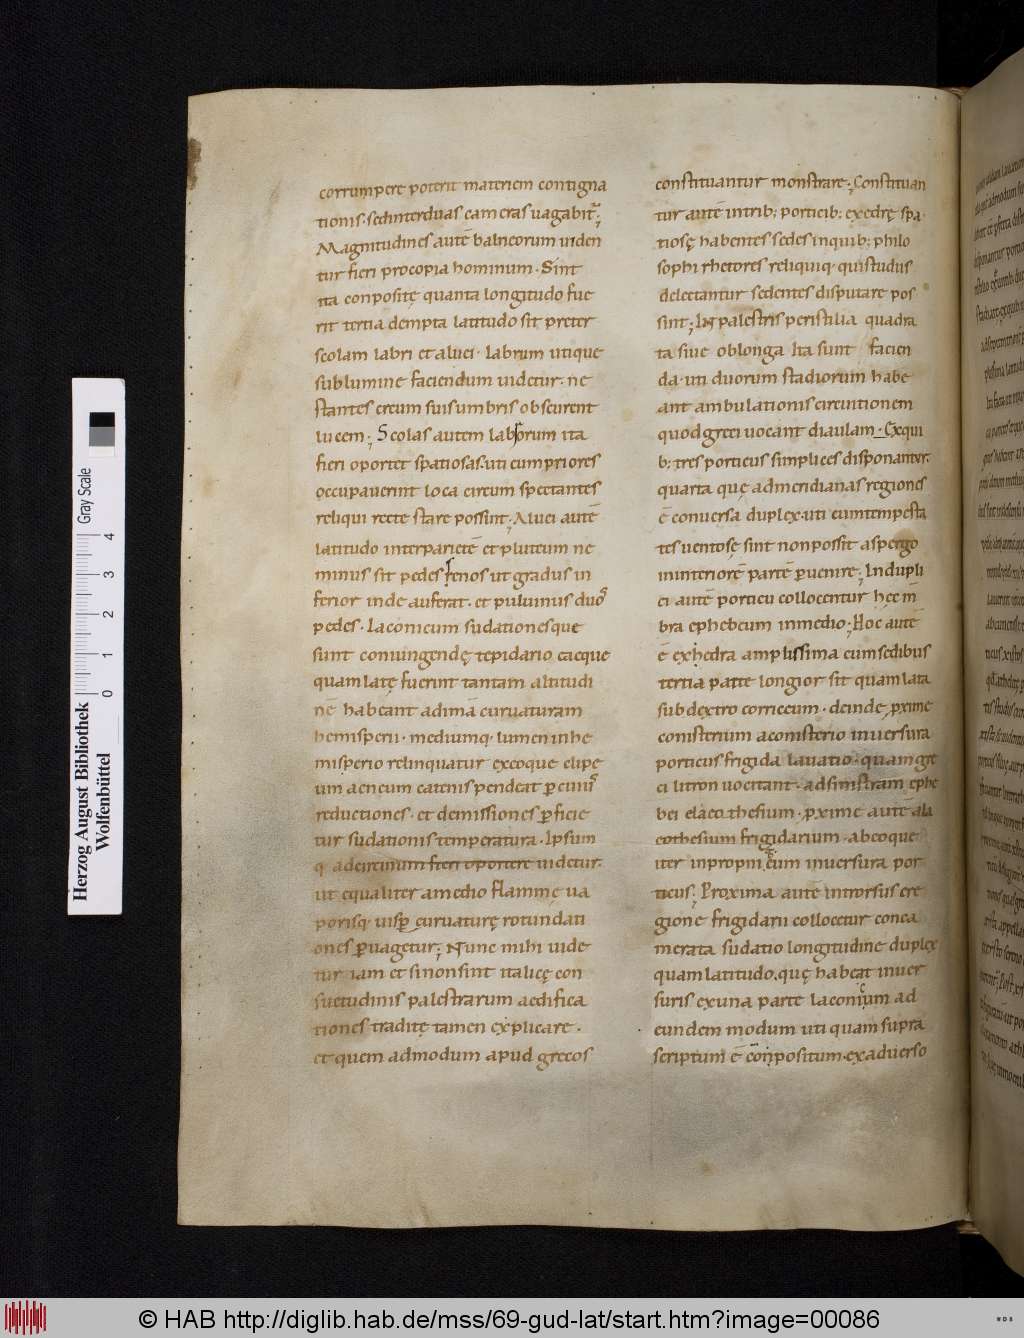 corrumpere poterit materiem contigna
tionis· sedinterduas cameras uagabit᷑;
Magnitudines autē balneorum uiden
tur fieri procopia hominum· Sint
ita conpositę quanta longitudo fue
rit tertia dempta latitudo sit preter
scolam labri et aluei· labrum utique
sublumine faciendum uidetur· ne
stantes circum suisumbris obscurent
lucem; Scolas autem labrorum ita
fieri oportet spatiosas· uti cumpriores
occupauerint loca circum spectantes
reliqui recte stare possint; Aluei autē
latitudo interparietē et pluteum ne
minus sit pedes senos ut gradus in
ferior inde auferat· et puluinus duoˢ
pedes· Laconicum sudationesque
sunt coniungendę tepidario eaeque
quam latę fuerint tantam altitudi
ne habeant adimā curuaturam
hemisperii· mediumq· lumen inhe
misperio relinquatur exeoque clipe
um aeneum catenis pendeat ꝑ cuiuˢ
reductiones· et demissiones ꝑficie
tur sudationis temperatura· Ipsum
q· adcircinum fieri oportere uidetur
ut equaliter amedio flammę ua
porisq· uisꝑ curuaturę rotundati
ones ꝑuagetur; Nunc mihi uide
tur iam et sinonsint italicę con
suetudinis palestrarum aedifica
tiones traditę tamen explicare·
et quem admodum apud grecos
constituantur monstrare; Constituan
tur autē intrib; porticib; exedrę spa
tiosę habentes sedes inquib; philo
sophi rhetores reliquiq· quistudus
delectantur sedentes disputare pos
sint; In palestris peristilia quadra
ta siue oblonga ita sunt facien
da· uti duorum stadiorum habe
ant ambulationis circuitionem
quod greci uocant diaulam· Exqui
b; tres porticus simplices disponantur·
quarta quę admeridianas regiones
ē conuersa duplex· uti cumtempesta
tes uentosę sint nonpossit aspergo
ininteriorē partē ꝑuenire; Indupli
ci autē porticu collocentur hec m̄
bra ephebeum inmedio; Hoc autē
ē exhedra amplissima cumsedibus
tertia parte longior sit quam lata
sub dextro corriceum· deinde ꝓxime
conisterium aconisterio inuersura
porticus frigida lauatio· quam gre
ci litron uocitant· adsinistram ephe
bei elaeo thesium· ꝓxime autē ala
eothesium frigidarium· abeoque
iter inpropnigeum inuersura por
ticus; Proxima autē introrsus ere
gione frigidarii collocetur conca
merata sudatio longitudine duplex
quam latitudo· quę habeat inuer
suris exuna parte laconicum ad
eundem modum uti quam supra
scriptum ē conpositum· exaduerso
Herzog August Bibliothek
Wolfenbüttel
Gray Scale
0 1 2 3 4
© HAB http://diglib.hab.de/mss/69-gud-lat/start.htm?image=00086
WDB